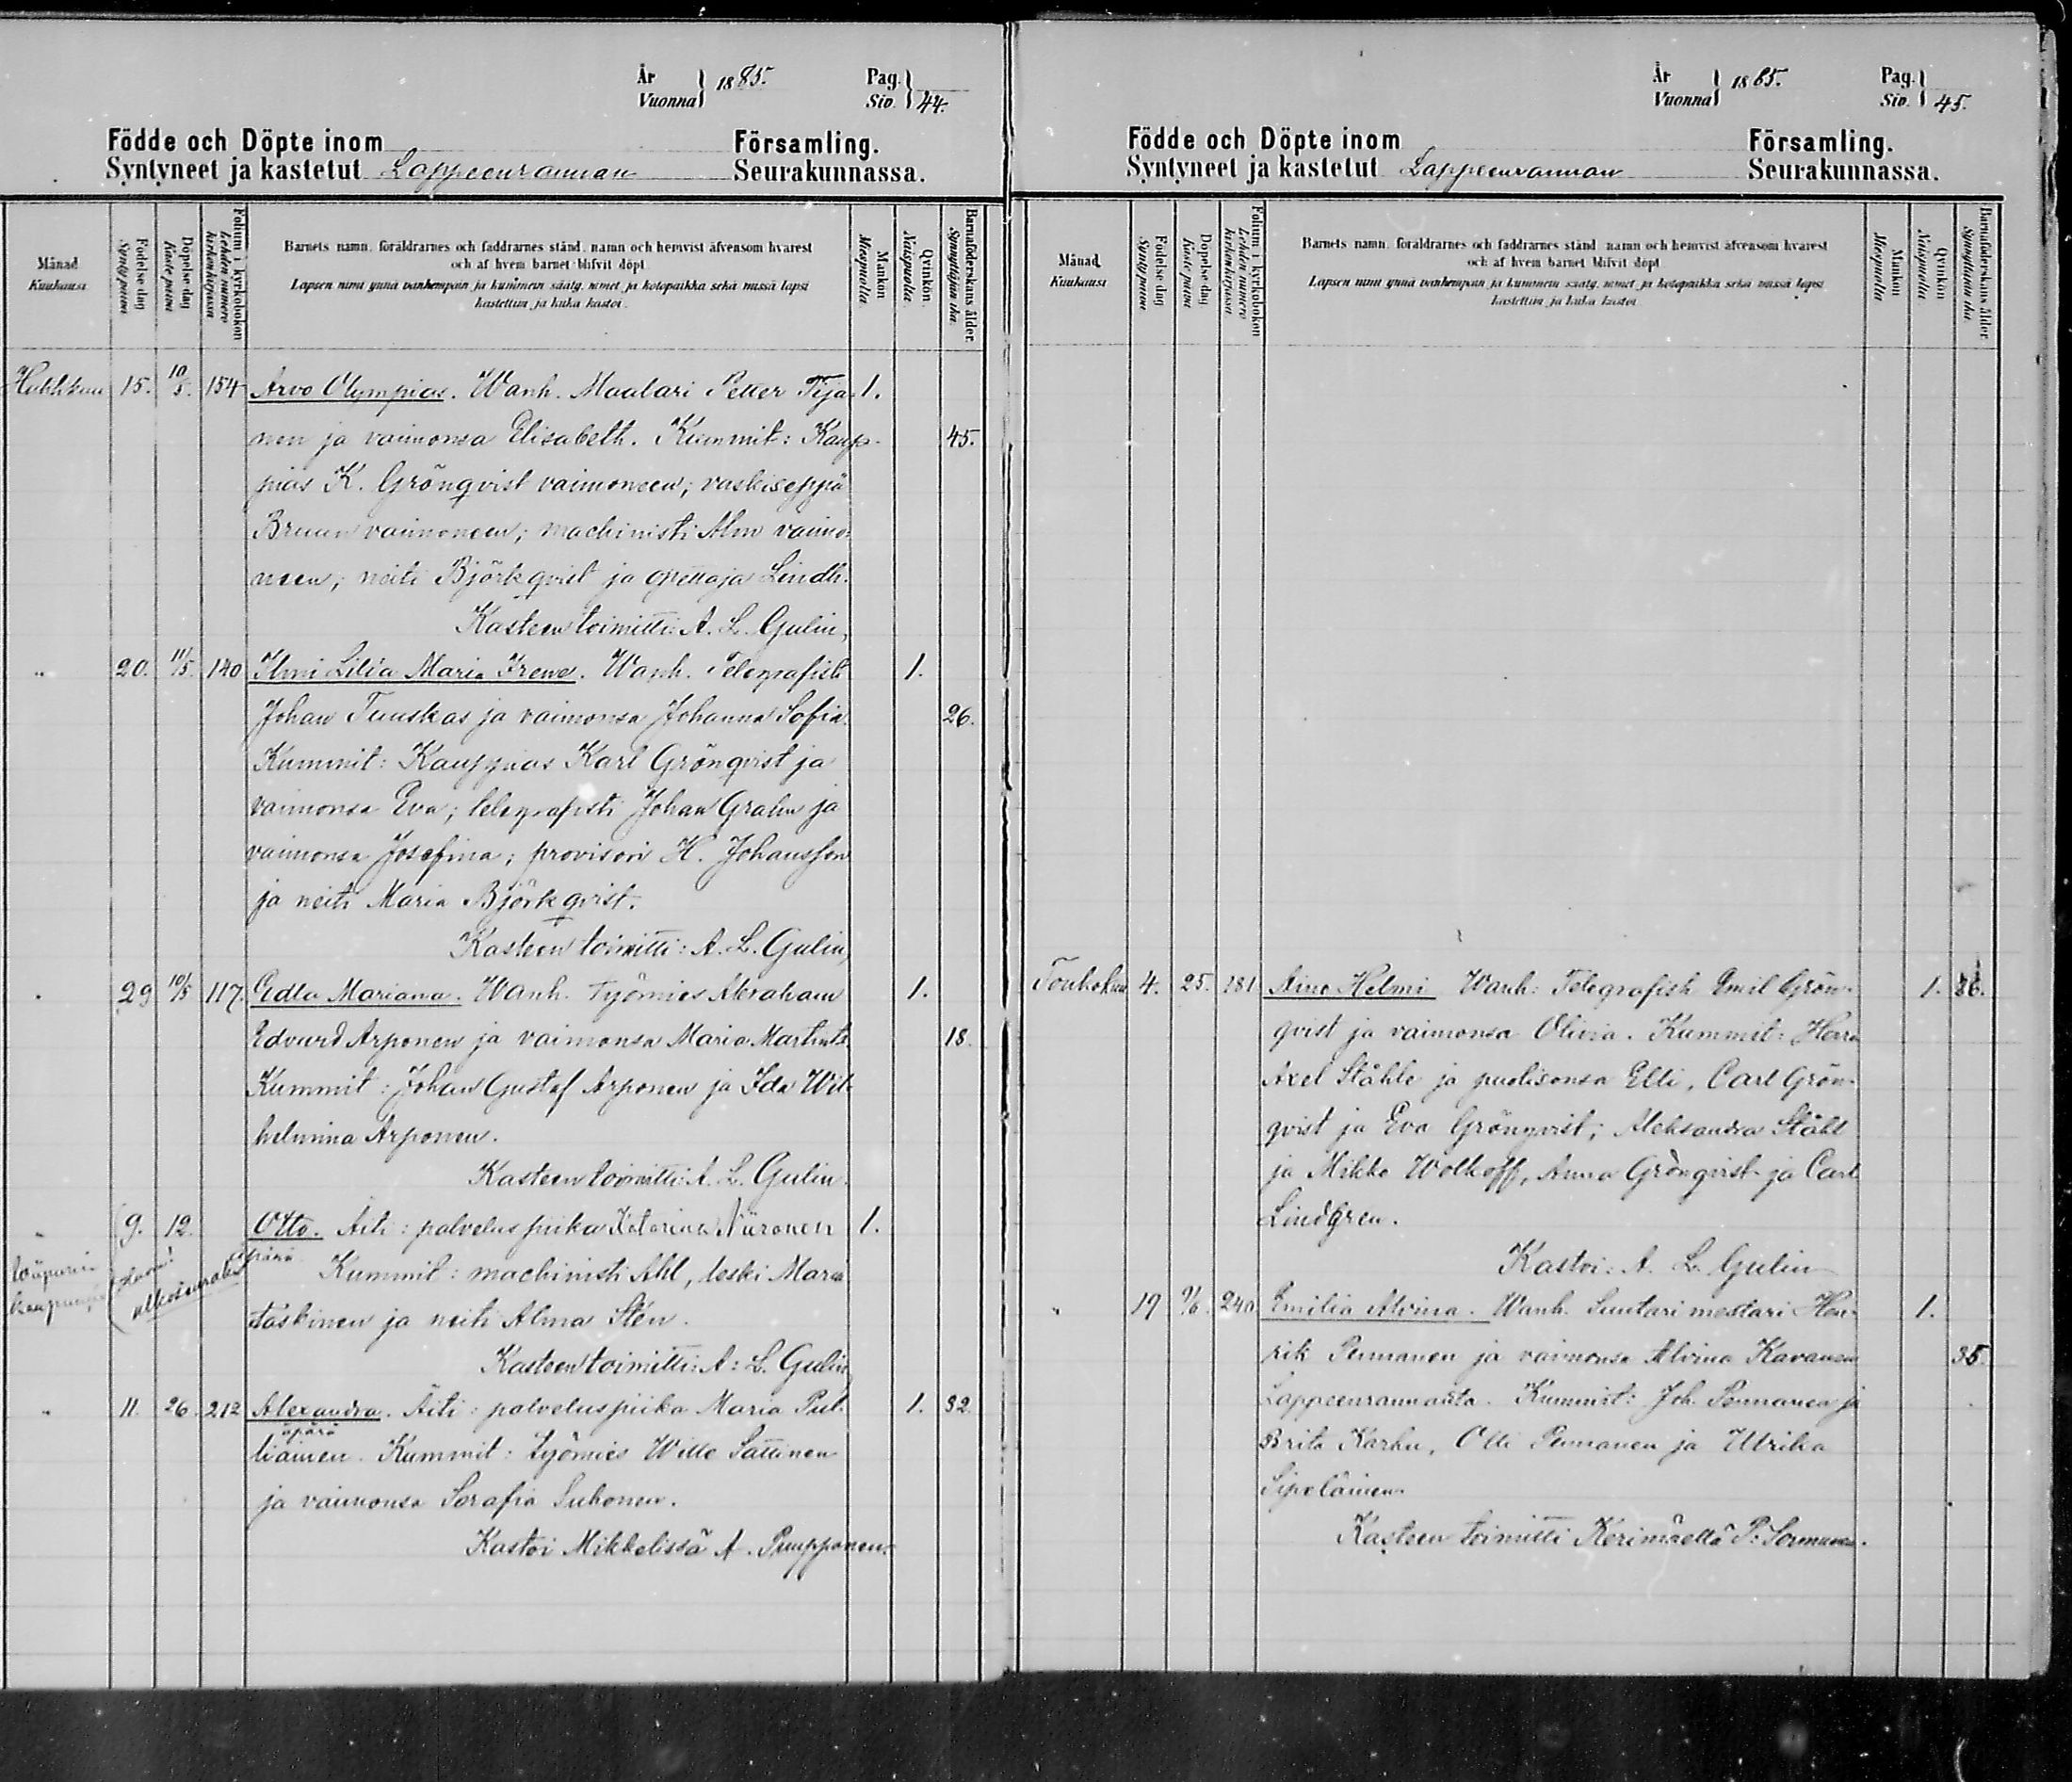 År
Vuonna } 1885.
Pag.
Siv. } 44.
Födde och Döpte inom Församling.
Syntyneet ja kastetut Lappeenrannan Seurakunnassa.
Månad
Kuukausi
Födelse dag
Syntypäivä
Döpelse dag
Kastepäivä
Folium i kyrkoboken
Lehden numero kirkonkirjassa
Barnets namn, föräldrarnes och faddrarnes stånd, namn och hemvist äfvensom hvarest
och af hvem barnet blifvit döpt.
Lapsen nimi ynnä vanhempain ja kummein sääty, nimet ja kotopaikka sekä missä lapsi
kastettiin ja kuka kastoi.
Mankön
Miespuolia.
Qvinkön.
Naispuolia.
Barnaföderskans ålder.
Synnyttäjän ikä.
Huhtikuu 15. 10/5. 154 Arvo Olympias. Wanh. Maalari Petter Tija- 1.
nen ja vaimonsa Elisabeth. Kummit: Kaup- 45.
pias K. Grönqvist vaimoneen; vaskiseppä
Bruun vaimoneen; machinisti Alm vaimo-
neen; neiti Björkqvist ja opettaja Lindh.
Kasteen toimitti: A. L. Gulin,
" 20. 11/5. 140 Ilmi Lilia Maria Irene. Wanh. Telegrafisti 1.
Johan Tuuskas ja vaimonsa Johanna Sofia. 26.
Kummit: Kauppias Karl Grönqvist ja
vaimonsa Eva; telegrafisti Johan Grahn ja
vaimonsa Josefina; provisori H. Johansson
ja neiti Maria Björkqvist.
Kasteen toimitti: A. L. Gulin,
" 29 10/5 117. Edla Mariana. Wanh. Työmies Abraham 1.
Edvard Arponen ja vaimonsa Maria Martint. 18.
Kummit: Johan Gustaf Arponen ja Ida Wil-
helmina Arponen.
Kasteen toimitti: A. L. Gulin.
" 9. 12. Otto. Äiti: palveluspiika Katarina Niironen 1.
äpärä
Wiipurin
kaupungin
ulkoseurak.
Kummit: machinisti Ahl, leski Maria
Taskinen ja neiti Alma Stén.
Kasteen toimitti: A. L. Gulin
" 11. 26. 212 Alexandra. Äiti: palveluspiika Maria Pul- 1. 32.
äpärä
liainen. Kummit: työmies Wille Sallinen
ja vaimonsa Serafia Suhonen.
Kastoi Mikkelissä A. Puupponen.
År
Vuonna } 1885.
Pag.
Siv. } 45.
Födde och Döpte inom Församling.
Syntyneet ja kastetut Lappeenrannan Seurakunnassa.
Månad
Kuukausi
Födelse dag
Syntypäivä
Döpelse dag
Kastepäivä
Folium i kyrkoboken
Lehden numero kirkonkirjassa
Barnets namn, föräldrarnes och faddrarnes stånd, namn och hemvist äfvensom hvarest
och af hvem barnet blifvit döpt.
Lapsen nimi ynnä vanhempain ja kummein sääty, nimet ja kotopaikka sekä missä lapsi
kastettiin ja kuka kastoi.
Mankön
Miespuolia
Qvinkön
Naispuolia.
Barnaföderskans ålder.
Synnyttäjän ikä.
Toukokuu 4. 25. 181 Aino Helmi Wanh: Telegrafisti Emil Grön- 1. 26.
qvist ja vaimonsa Olivia. Kummit: Herra
Axel Ståhle ja puolisonsa Elli, Carl Grön-
qvist ja Eva Grönqvist; Aleksandra Ståhl
ja Mikko Wolkoff, Anna Grönqvist ja Carl
Lindgren.
Kastoi: A. L. Gulin
" 19 9/6. 240 Emilia Alvina. Wanh. Suutari mestari Hen- 1.
rik Pennanen ja vaimonsa Alvina Kavanen 35
Lappeenrannasta. Kummit: Joh. Pennanen ja
Brita Karhu, Olli Pennanen ja Ulrika
Sipeläinen.
Kasteen toimitti Kerimäellä P. Sormunen.